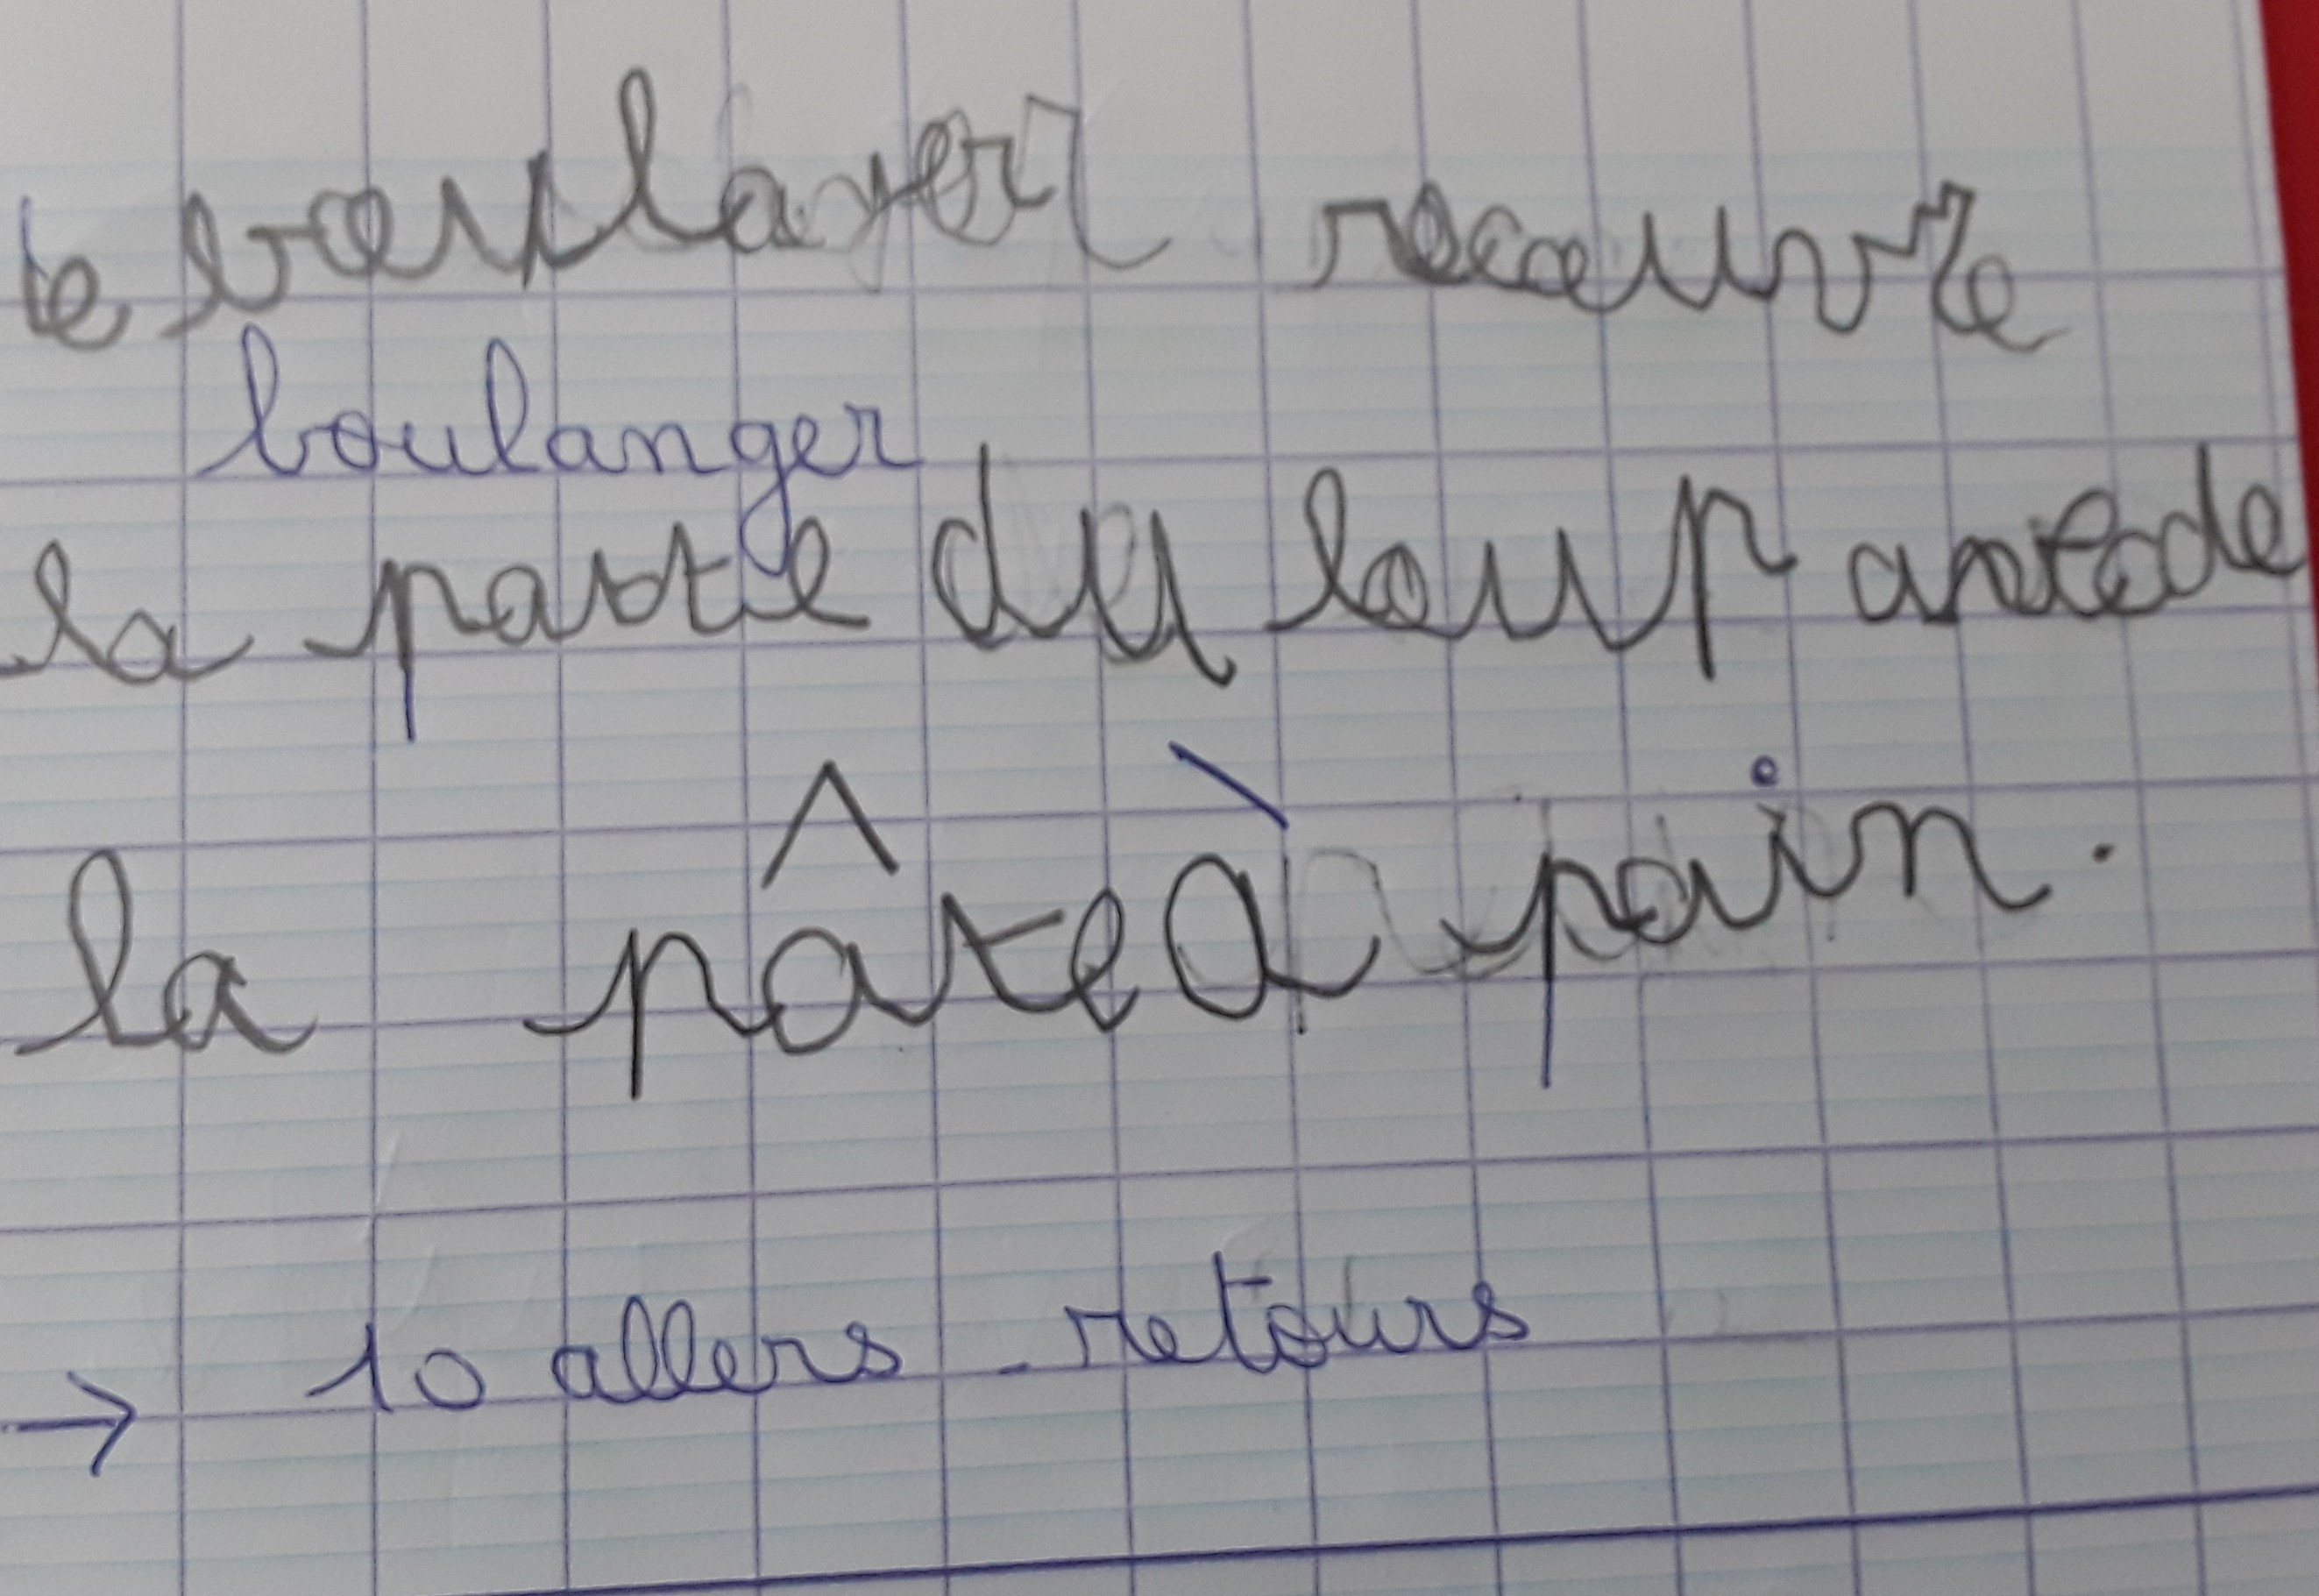 le boulayer recouvre
boulanger
la patte du loup avec de
la pâte à pain.
→ 10 allers-retours